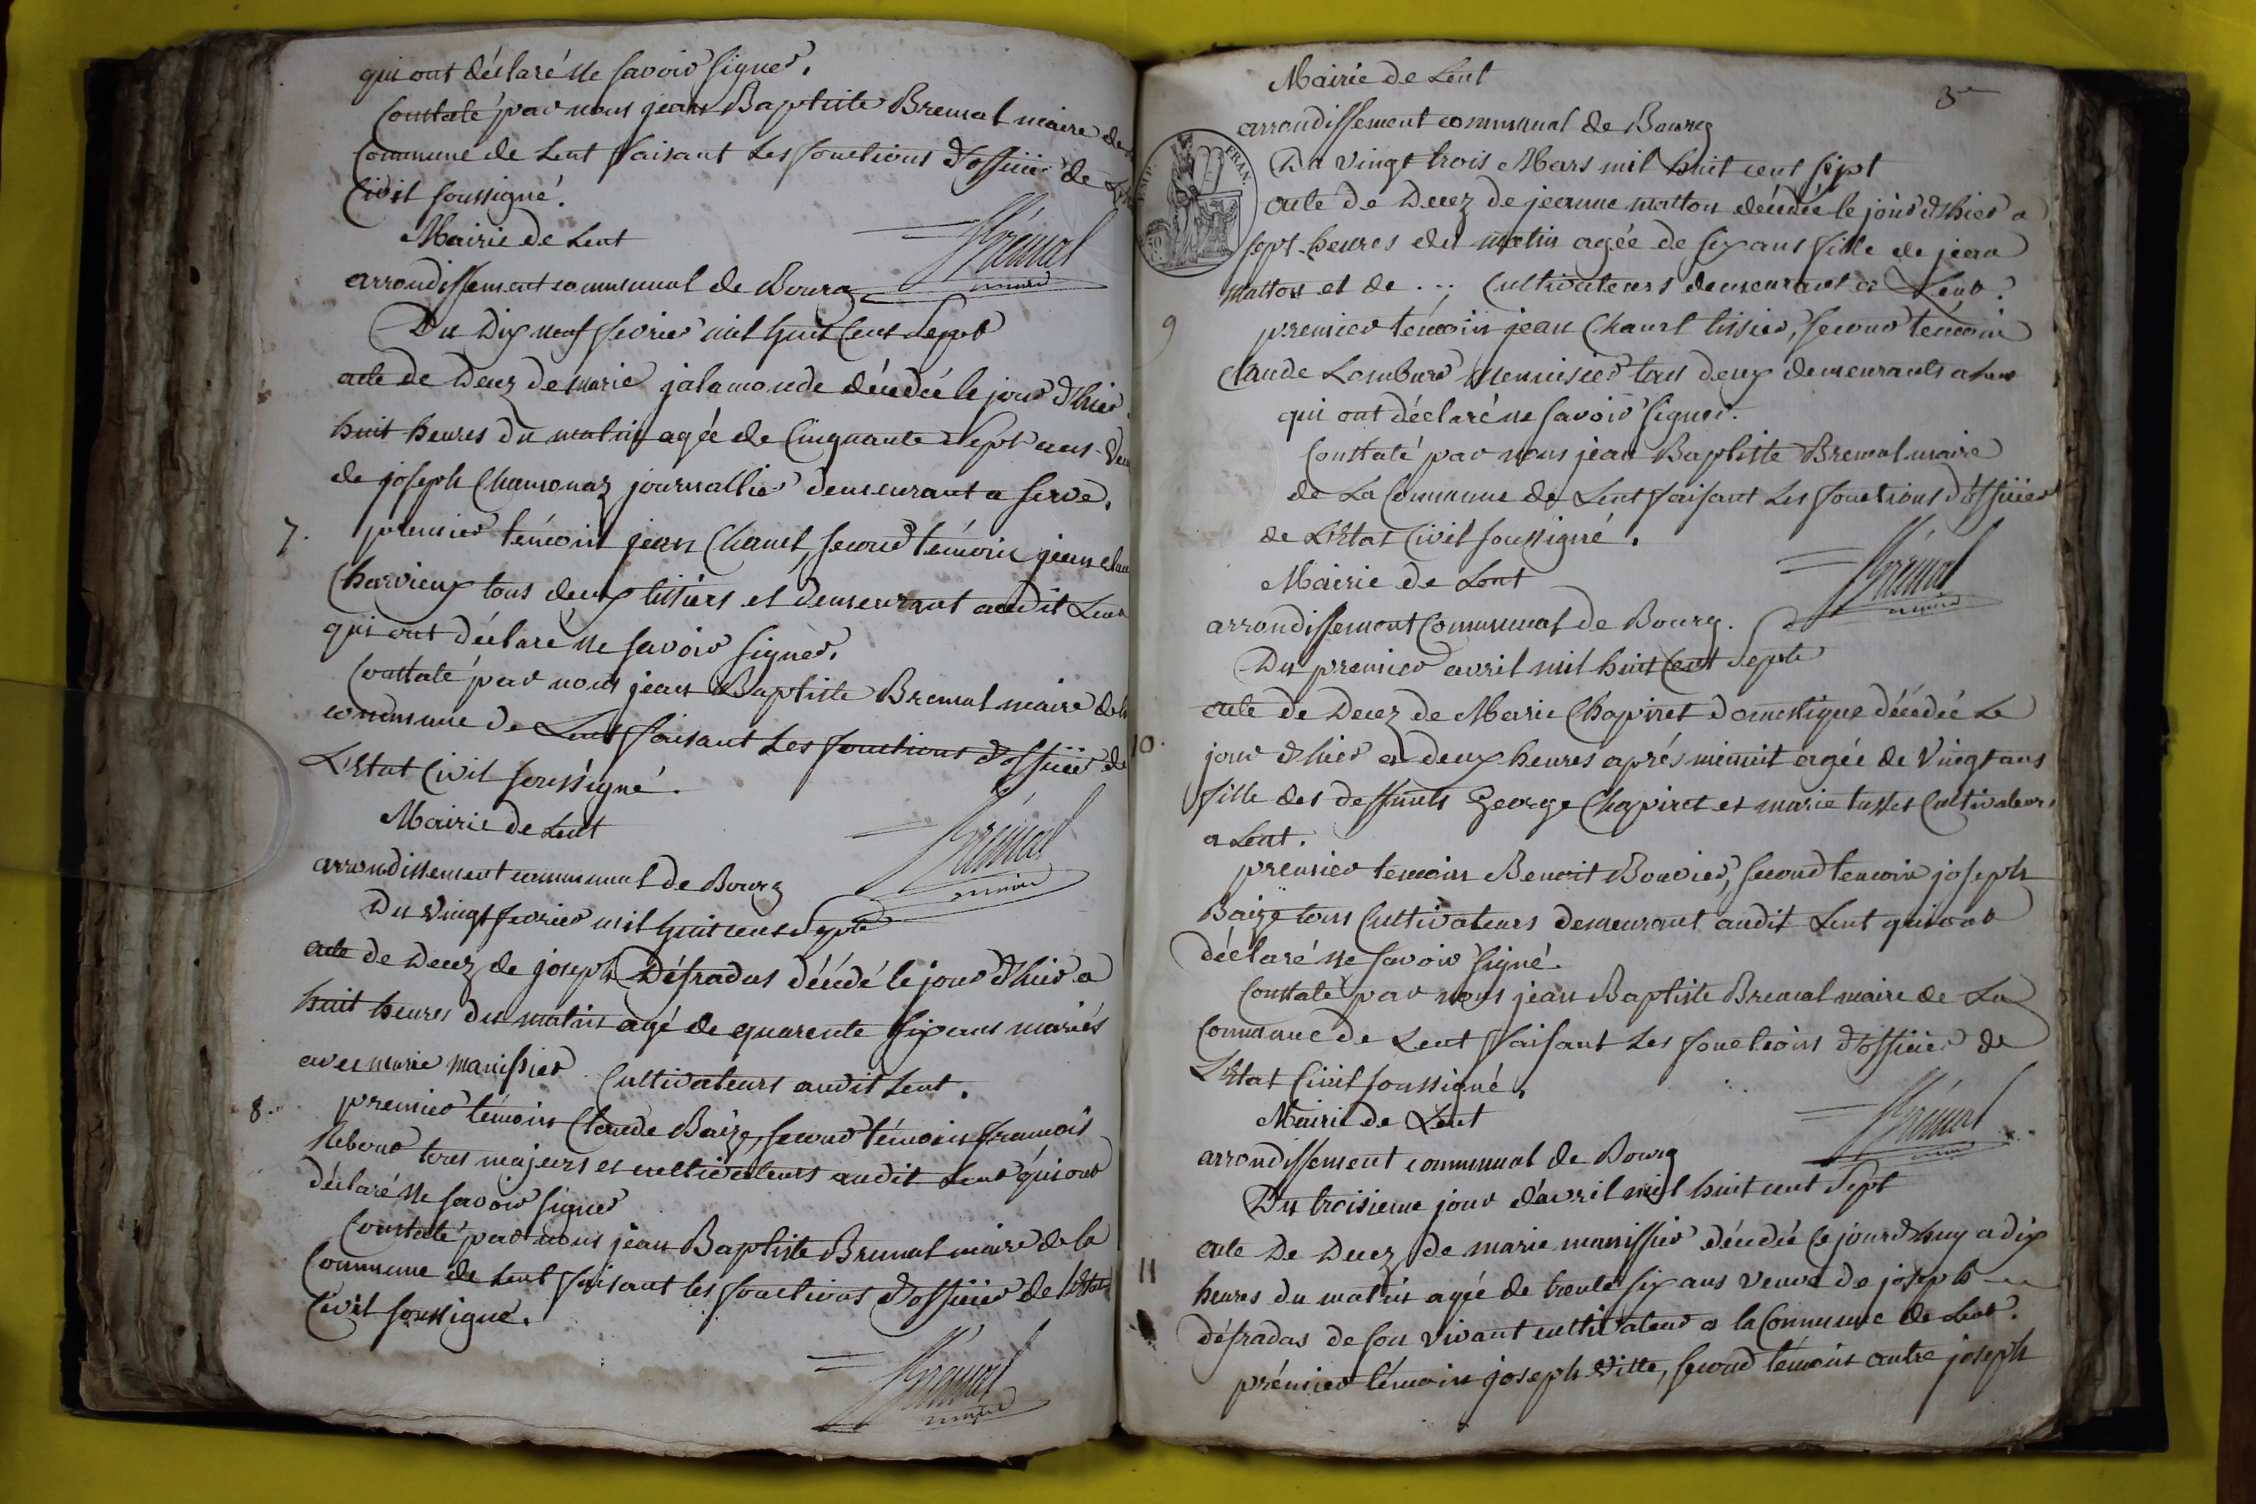 qui ont déclaré ne savoir signer.
Constaté par nous jean Baptiste Bremal maire de
Commune de Lent faisant les fonctions d'officier de
Civil soussigné.
Bremal
maire
Mairie de Lent
arrondissement communal de Bourg
Du Dix neuf fevrier mil huit Cent Sept
acte de Decez de marie jalamonde décédée le jour d'hier
huit heures du matin agée de Cinquante Sept ans
de joseph Chamonaz journallier demeurant a Serve.
7.
premier témoin jean Chanel, second témoin jean
Charvieux tous deux tissiers et demeurant audit Lent
qui ont déclaré ne savoir signer.
Constaté par nous jean Baptiste Bremal maire de
commune de Lent faisant les fonctions d'officier de
L'Etat Civil soussigné.
Bremal
maire
Mairie de Lent
arrondissement communal de Bourg
Du vingt fevrier mil huit cent Sept
acte de Decez de joseph Défradas décédé le jour d'hier a
huit heures du matin agé de quarente six ans mariés
avec marie manissier Cultivateurs audit Lent.
8.
premier témoin Claude Baize, second témoin francois
tous majeurs et cultivateurs audit Lent qui ont
déclaré ne savoir signer
Constaté par nous jean Baptiste Bremal maire de la
Commune de Lent faisant les fonctions d'officier de l'Etat
Civil soussigné.
Bremal
maire
3
Mairie de Lent
arrondissement communal de Bourg
EMP. FRAN.
Du vingt trois Mars mil huit cent sept
acte de Decez de jeanne matton décédée le jour d'hier a
sept heures du matin agée de six ans fille de jean
matton et de ... Cultivateurs demeurant a Lent.
9
premier témoin jean Chanel tissier, second temoin
Claude menuisier tous deux demeurants a Lent
qui ont déclaré ne savoir signer.
Constaté par nous jean Baptiste Bremal maire
de La Commune de Lent faisant les fonctions d'officier
de L'Etat Civil soussigné.
Bremal
maire
Mairie de Lent
arrondissement Communal de Bourg.
Du premier avril mil huit Cent Sept
acte de Decez de Marie Chapiret domestique décédée Le
10.
jour d'hier a deux heures aprés minuit agée de Vingt ans
fille des deffunts George Chapiret et marie Cultivateurs
a Lent.
premier temoin Benoit Bouvier, second temoin joseph
Baize tous Cultivateurs demeurant audit Lent qui ont
déclaré ne savoir signé.
Constaté par nous jean Baptiste Bremal maire de La
Commune de Lent faisant Les fonctions d'officier de
L'Etat Civil soussigné.
Bremal
maire
Mairie de Lent
arrondissement communal de Bourg
Du troisieme jour d'avril mil huit cent Sept
acte De Decez de marie manissier décédée ce jourd'huy a dix
11
heures du matin agée de trente six ans veuve de joseph
défradas de son vivant cultivateur a la Commune de Lent.
prémier témoin joseph Vitte, second témoin autre joseph